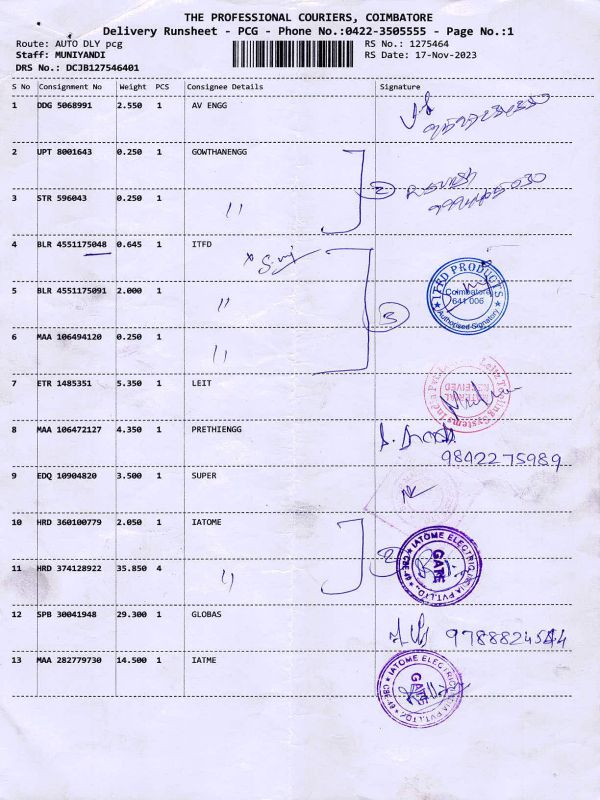 THE PROFESSIONAL COURIERS, COIMBATORE
Delivery Runsheet - PCG - Phone No.:0422-3505555 - Page No.:1
Route: AUTO DLY pcg RS No.: 1275464
Staff: MUNIYANDI RS Date: 17-Nov-2023
DRS No.: DCJB127546401
S No Consignment No Weight PCS Consignee Details Signature
1 DDG 5068991 2.550 1 AV ENGG
2 UPT 8001643 0.250 1 GOWTHANENGG
2
3 STR 596043 0.250 1 〃
4 BLR 4551175048 0.645 1 ITFD
ITFD PRODUCTS
Coimbatore
641 006
Authorised Signatory
5 BLR 4551175091 2.000 1 〃
3
6 MAA 106494120 0.250 1 〃
7 ETR 1485351 5.350 1 LEIT
MATERIAL
RECEIVED
8 MAA 106472127 4.350 1 PRETHIENGG
9842275989
9 EDQ 10904820 3.500 1 SUPER
10 HRD 360100779 2.050 1 IATOME
2
IATOME ELECTRIC
GATE
11 HRD 374128922 35.850 4 〃
12 SPB 30041948 29.300 1 GLOBAS
13 MAA 282779730 14.500 1 IATME
IATOME ELECTRIC
GATE